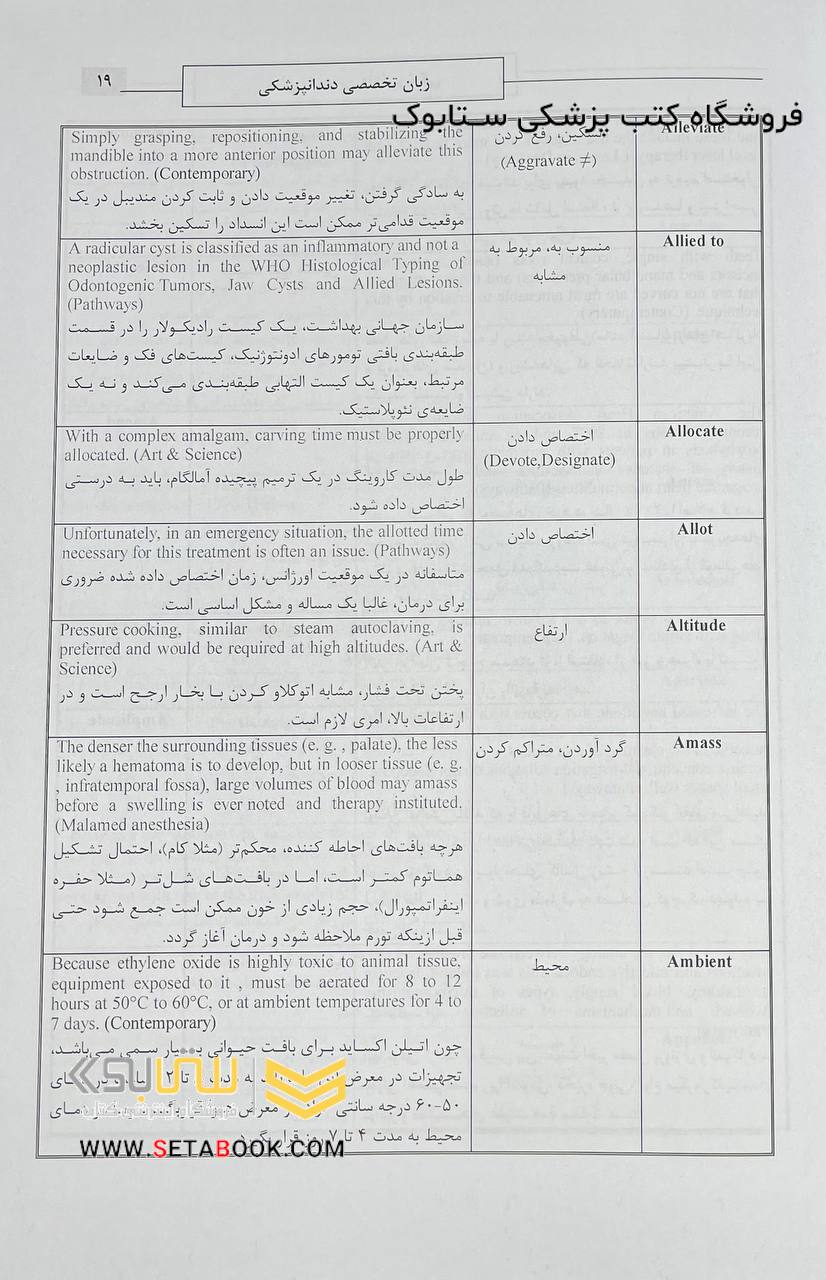 ۱۹
زبان تخصصی دندانپزشکی
فروشگاه کتب پزشکی ستابوک
Alleviate
تسکین، رفع کردن
(Aggravate ≠)
Simply grasping, repositioning, and stabilizing the
mandible into a more anterior position may alleviate this
obstruction. (Contemporary)
به سادگی گرفتن، تغییر موقعیت دادن و ثابت کردن مندیبل در یک
موقعیت قدامی‌تر ممکن است این انسداد را تسکین بخشد.
Allied to
منسوب به، مربوط به
مشابه
A radicular cyst is classified as an inflammatory and not a
neoplastic lesion in the WHO Histological Typing of
Odontogenic Tumors, Jaw Cysts and Allied Lesions.
(Pathways)
سازمان جهانی بهداشت، یک کیست رادیکولار را در قسمت
طبقه‌بندی بافتی تومورهای ادونتوژنیک، کیست‌های فک و ضایعات
مرتبط، بعنوان یک کیست التهابی طبقه‌بندی می‌کند و نه یک
ضایعه‌ی نئوپلاستیک.
Allocate
اختصاص دادن
(Devote,Designate)
With a complex amalgam, carving time must be properly
allocated. (Art & Science)
طول مدت کاروینگ در یک ترمیم پیچیده آمالگام، باید به درستی
اختصاص داده شود.
Allot
اختصاص دادن
Unfortunately, in an emergency situation, the allotted time
necessary for this treatment is often an issue. (Pathways)
متاسفانه در یک موقعیت اورژانس، زمان اختصاص داده شده ضروری
برای درمان، غالبا یک مساله و مشکل اساسی است.
Altitude
ارتفاع
Pressure cooking, similar to steam autoclaving, is
preferred and would be required at high altitudes. (Art &
Science)
پختن تحت فشار، مشابه اتوکلاو کردن با بخار ارجح است و در
ارتفاعات بالا، امری لازم است.
Amass
گرد آوردن، متراکم کردن
The denser the surrounding tissues (e. g. , palate), the less
likely a hematoma is to develop, but in looser tissue (e. g.
, infratemporal fossa), large volumes of blood may amass
before a swelling is ever noted and therapy instituted.
(Malamed anesthesia)
هرچه بافت‌های احاطه کننده، محکم‌تر (مثلا کام)، احتمال تشکیل
هماتوم کمتر است، اما در بافت‌های شل‌تر (مثلا حفره
اینفراتمپورال)، حجم زیادی از خون ممکن است جمع شود حتی
قبل ازینکه تورم ملاحظه شود و درمان آغاز گردد.
Ambient
محیط
Because ethylene oxide is highly toxic to animal tissue,
equipment exposed to it , must be aerated for 8 to 12
hours at 50°C to 60°C, or at ambient temperatures for 4 to
7 days. (Contemporary)
چون اتیلن اکساید برای بافت حیوانی بسیار سمی می‌باشد،
تجهیزات در معرض
۵۰-۶۰ درجه سانتی
محیط به مدت ۴ تا ۷ روز قرار بگیرد.
ستابوک
فروشگاه اینترنتی کتاب
WWW.SETABOOK.COM